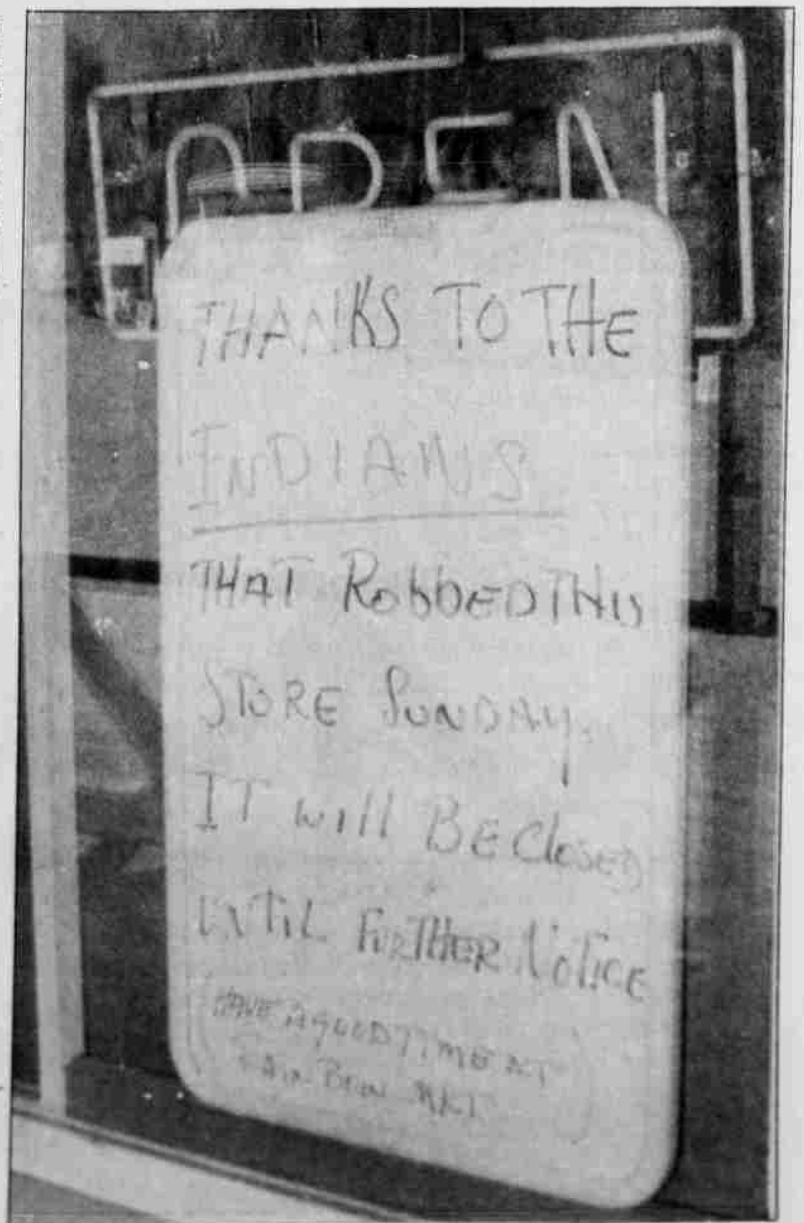 OPEN
THANKS TO THE
INDIANS
THAT RobbED THIS
STORE SUNDAY.
IT will BE ClosED
UNTIL FURTHER NOTICE
(HAVE A GOOD TIME AT
RAINBOW MKT)